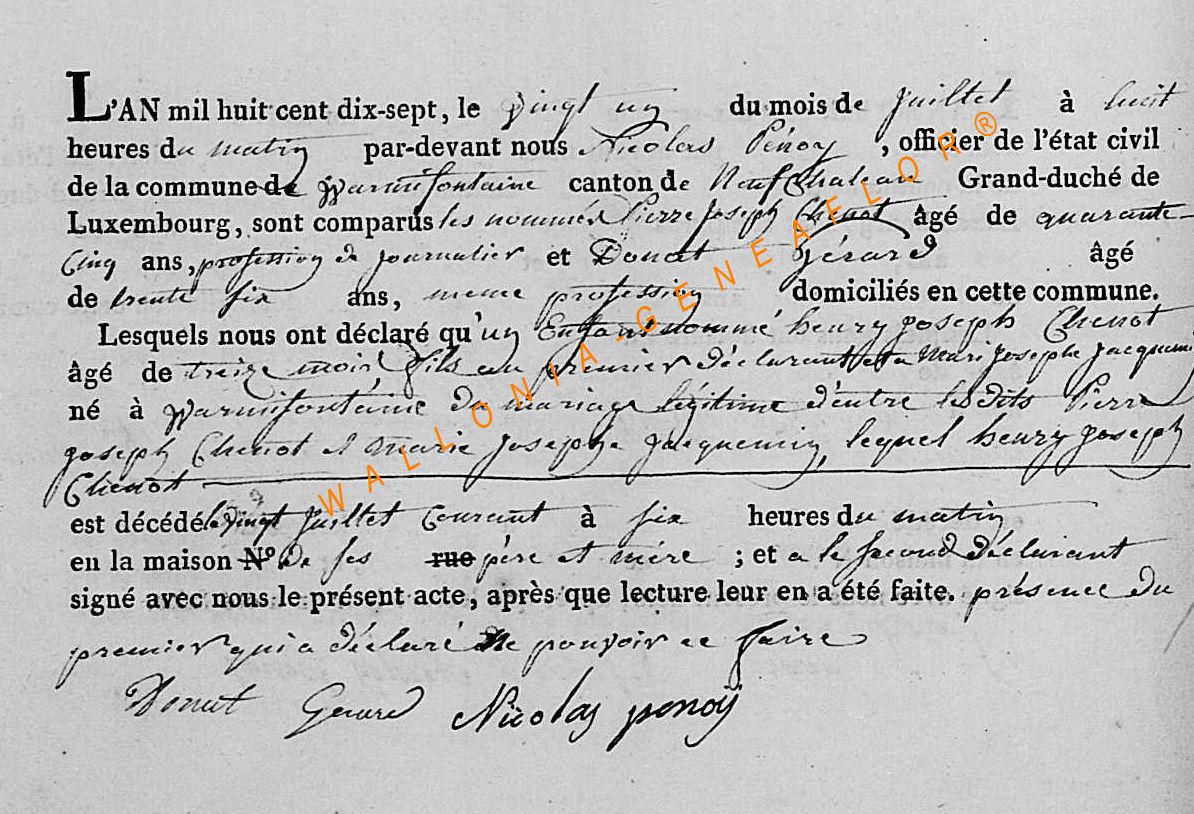 L'AN mil huit cent dix-sept, le vingt un du mois de juillet à huit
heures du matin par-devant nous Nicolas Pénoy, officier de l'état civil
de la commune de Warmifontaine canton de Neufchateau Grand-duché de
Luxembourg, sont comparus les nommés Pierre Joseph Chenot âgé de quarante-
cinq ans, profession de journalier et Donat Gérard âgé
de trente six ans, meme profession domiciliés en cette commune.
Lesquels nous ont déclaré qu'un Enfant nommé henry joseph Chenot
âgé de treize mois fils du premier déclarant et a Mari Josephe Jacquemin
né à Warmifontaine du mariage légitime d'entre les dits Pierre
joseph Chenot et Marie Josephe Jacquemin, lequel henry joseph
Chenot
est décédé le vingt Juillet Courant à six heures du matin
en la maison N° de ses rue père et mère ; et a le second déclarant
signé avec nous le présent acte, après que lecture leur en a été faite. présence du
premier qui a déclaré ne pouvoir ce faire
Donat Gerard Nicolas penoÿ
WALLONIA-GENEAELOR®